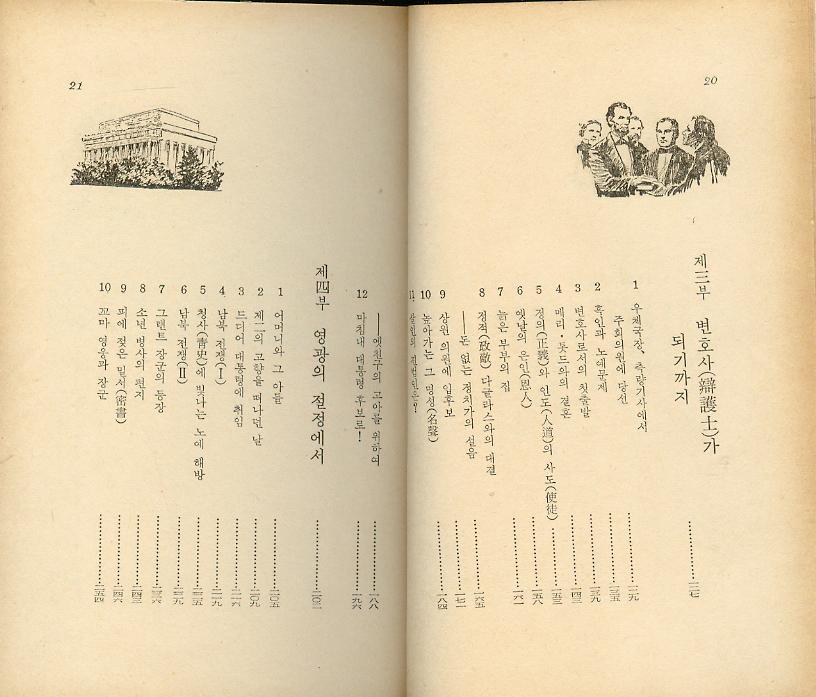 20
제三부 변호사(辯護士)가
되기까지 一二七
1 우체국장, 측량기사에서
주회의원에 당선 一二九
2 흑인과 노예문제 一三五
3 변호사로서의 첫출발 一三九
4 메리·톳드와의 결혼 一四三
5 정의(正義)와 인도(人道)의 사도(使徒) 一五三
6 옛날의 은인(恩人) 一五八
7 늙은 부부의 집 一六一
8 정적(政敵) 다글라스와의 대결 一六五
──돈 없는 정치가의 설음 一七一
9 상원 의원에 입후보 一八四
10 높아가는 그 명성(名聲)
11 살인의 진범인은?
──옛친구의 고아를 위하여 一八八
12 마침내 대통령 후보로! 一九六
제四부 영광의 절정에서 二〇三
1 어머니와 그 아들 二〇五
2 제二의 고향을 떠나던 날 二〇九
3 드디어 대통령에 취임 二一六
4 남북 전쟁(Ⅰ) 二一九
5 청사(靑史)에 빛나는 노예 해방 二二五
6 남북 전쟁(Ⅱ) 二二九
7 그랜트 장군의 등장 二三六
8 소년 병사의 편지 二四三
9 피에 젖은 밀서(密書) 二四六
10 꼬마 영웅과 장군 二五四
21